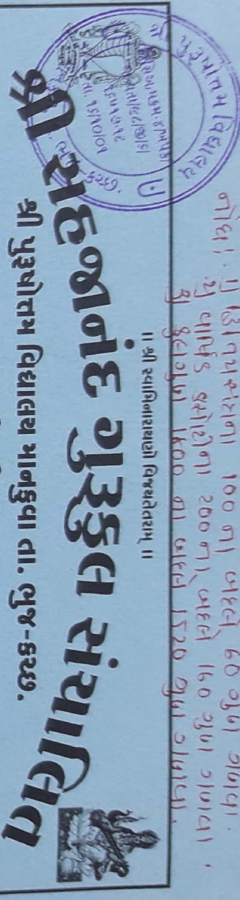 નોંધ : 1) દ્વિતીય સત્રના 100 ના બદલે 60 ગુણ ગણવા.
2) વાર્ષિક સત્રના 200 ના બદલે 160 ગુણ ગણવા.
3) કુલ ગુણ 1600 ના બદલે 1520 ગુણ ગણવા.
।। શ્રી સ્વામિનારાયણો વિજયતેતરામ્ ।।
શ્રી સહજાનંદ ગુરુકુલ સંચાલિત
શ્રી પુરૂષોત્તમ વિદ્યાલય માનકુવા તા. ભુજ-કચ્છ.